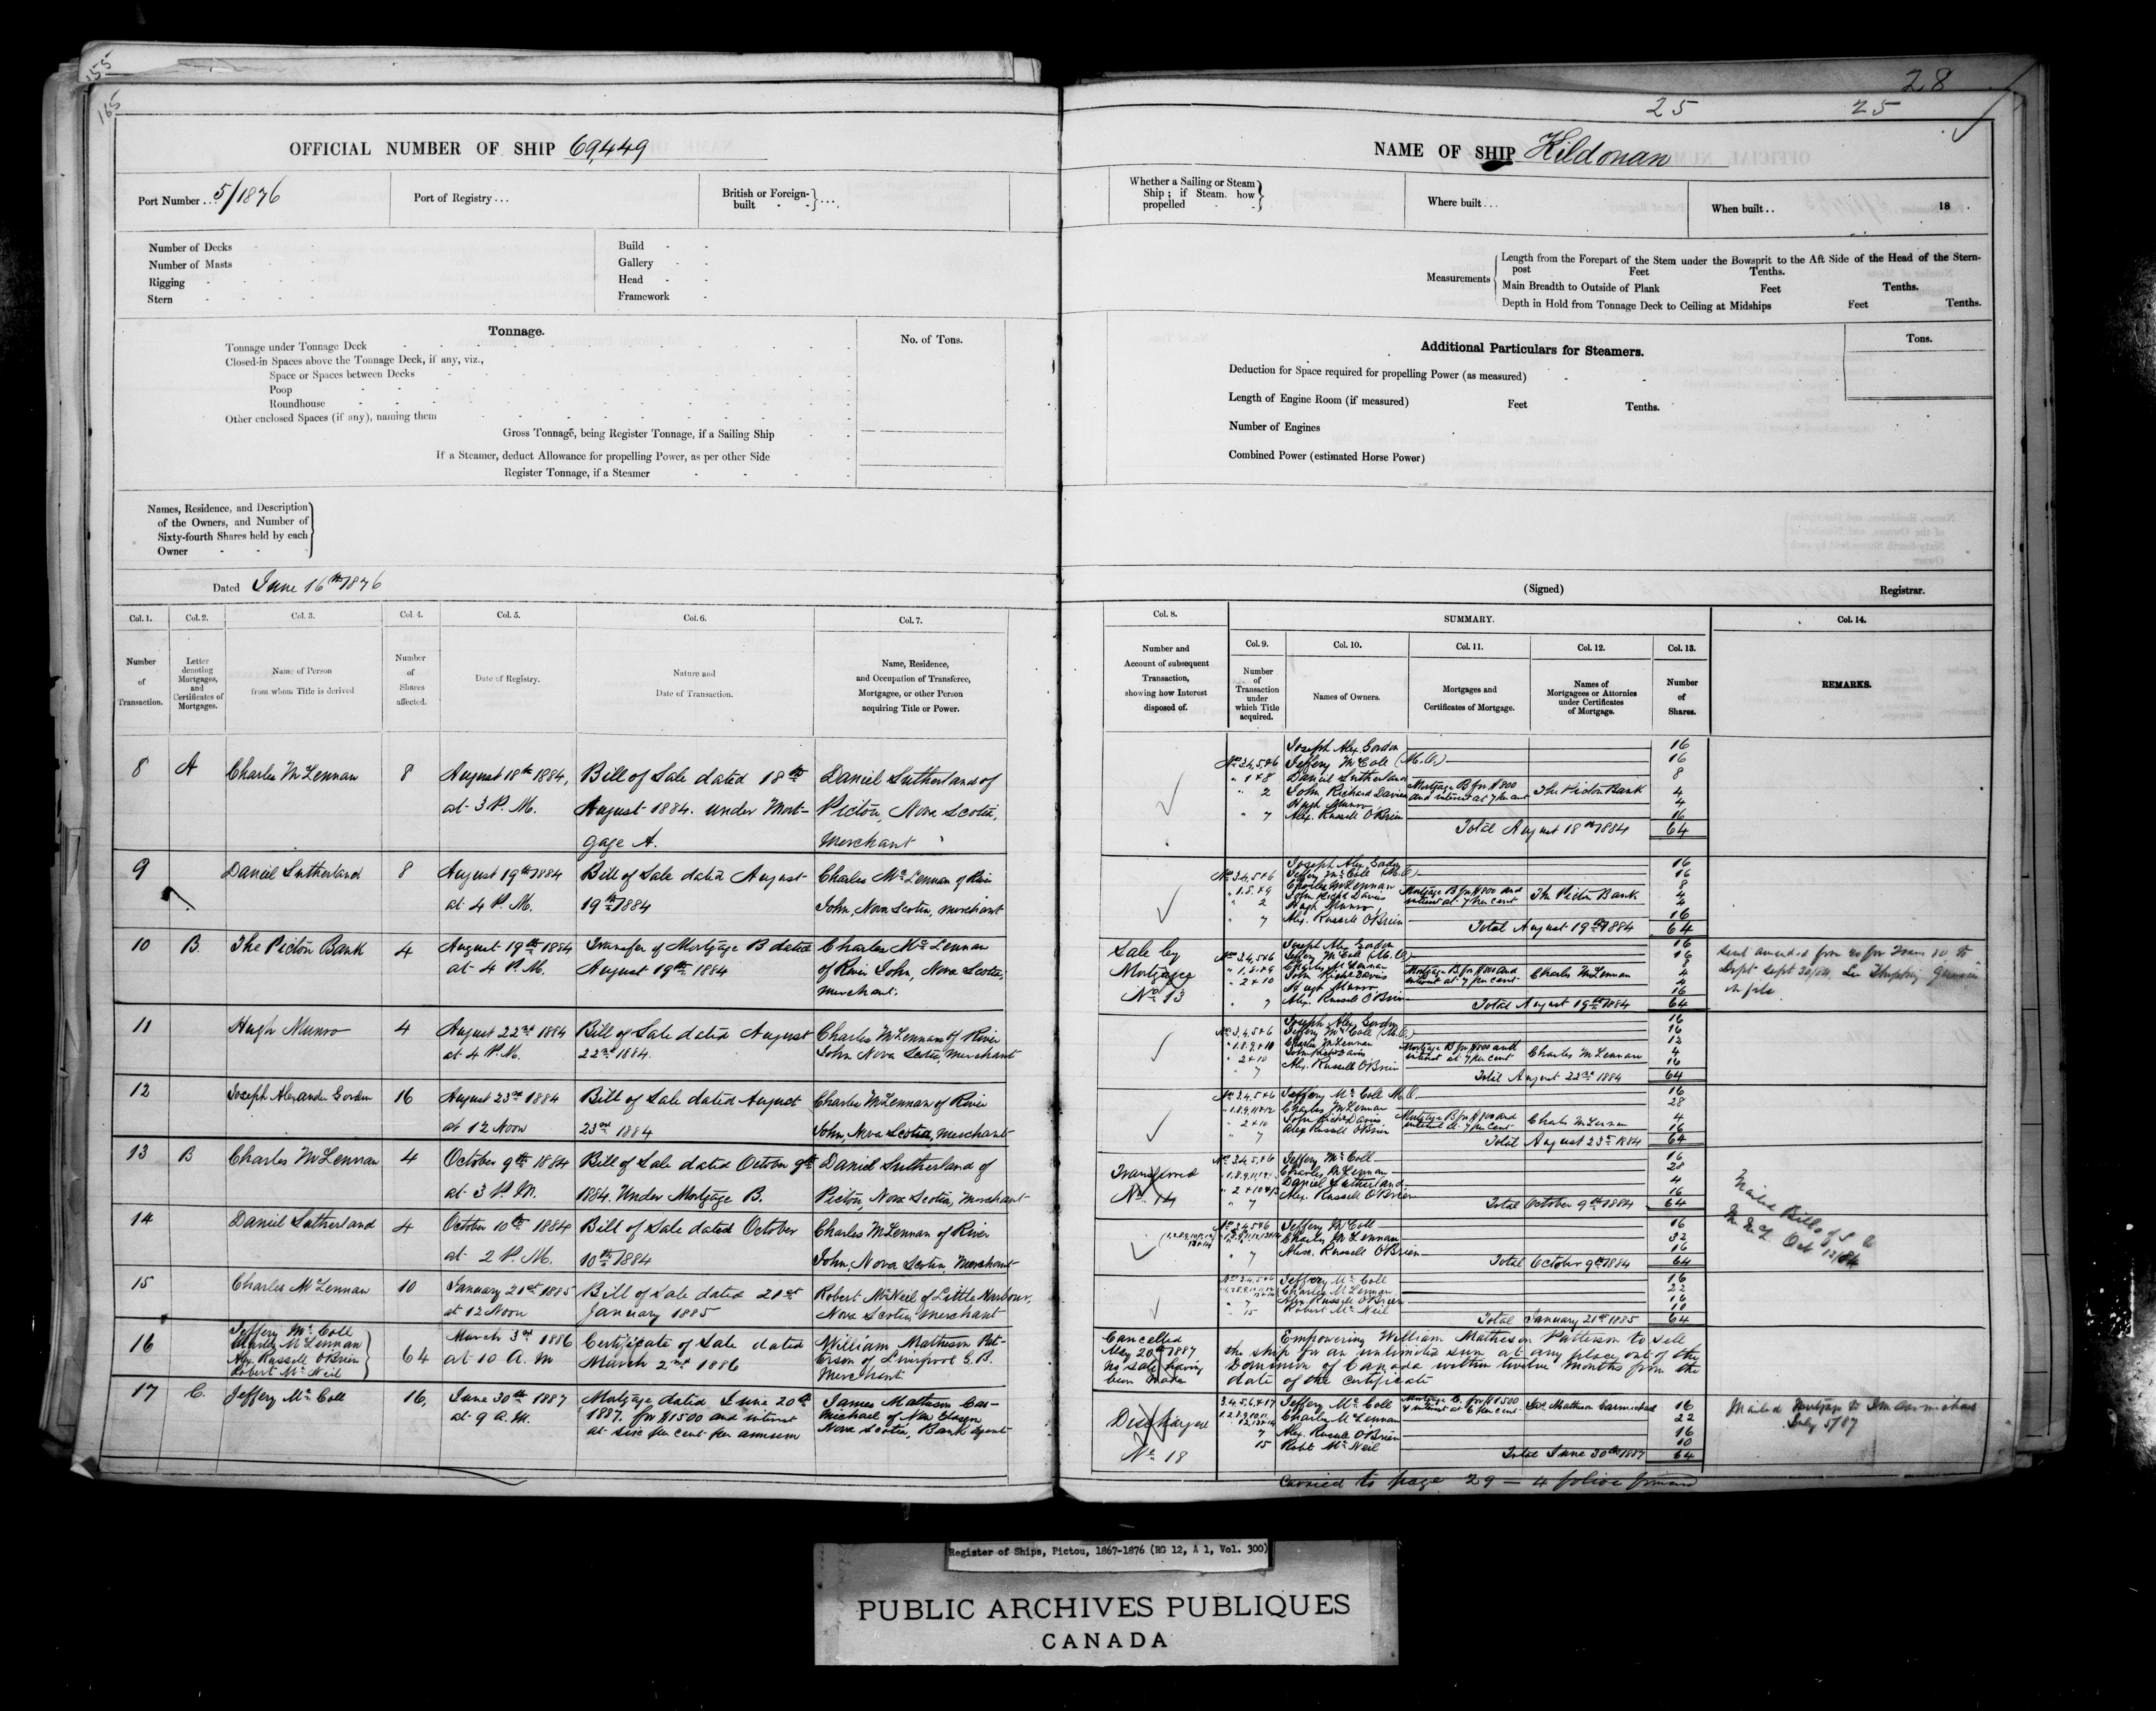 155
165
OFFICIAL NUMBER OF SHIP 69,449
Port Number... 5/1876
Port of Registry...
British or Foreign-built - - }...
Number of Decks
Number of Masts
Rigging
Stern
Build
Gallery
Head
Framework
Tonnage.
No. of Tons.
Tonnage under Tonnage Deck
Closed-in Spaces above the Tonnage Deck, if any, viz.,
Space or Spaces between Decks
Poop
Roundhouse
Other enclosed Spaces (if any), naming them
Gross Tonnage, being Register Tonnage, if a Sailing Ship
If a Steamer, deduct Allowance for propelling Power, as per other Side
Register Tonnage, if a Steamer
Names, Residence, and Description
of the Owners, and Number of
Sixty-fourth Shares held by each
Owner
Dated June 16th 1876
Col. 1. Col. 2. Col. 3. Col. 4. Col. 5. Col. 6. Col. 7.
Number of Transaction.
Letter denoting Mortgages, and Certificates of Mortgages.
Name of Person from whom Title is derived
Number of Shares affected.
Date of Registry.
Nature and Date of Transaction.
Name, Residence, and Occupation of Transferee, Mortgagee, or other Person acquiring Title or Power.
8 A Charles McLennan 8 August 18th 1884, Bill of Sale dated 18th Daniel Sutherland of
at 3 P.M. August 1884. under Mort- Pictou, Nova Scotia,
gage A. Merchant
9 Daniel Sutherland 8 August 19th 1884 Bill of Sale dated August Charles McLennan of River
at 4 P.M. 19th 1884 John, Nova Scotia, merchant
10 B. The Pictou Bank 4 August 19th 1884 Transfer of Mortgage B dated Charles McLennan
at 4 P.M. August 19th 1884 of River John, Nova Scotia,
merchant.
11 Hugh Munro 4 August 22nd 1884 Bill of Sale dated August Charles McLennan of River
at 4 P.M. 22nd 1884. John Nova Scotia, merchant
12 Joseph Alexander Gordon 16 August 23rd 1884 Bill of Sale dated August Charles McLennan of River
at 12 Noon 23rd 1884 John, Nova Scotia, merchant
13 B Charles McLennan 4 October 9th 1884 Bill of Sale dated October 9th Daniel Sutherland of
at 3 P.M. 1884. Under Mortgage B. Pictou, Nova Scotia, Merchant
14 Daniel Sutherland 4 October 10th 1884 Bill of Sale dated October Charles McLennan of River
at 2 P.M. 10th 1884 John, Nova Scotia, Merchant
15 Charles McLennan 10 January 21st 1885 Bill of Sale dated 21st Robert McNeil of Little Harbour,
at 12 Noon January 1885 Nova Scotia, merchant
16 Jeffery McColl
Charles McLennan
Alex. Russell O'Brien
Robert McNeil
64 March 3rd 1886 Certificate of Sale dated William Matheson Pat-
at 10 A.M March 2nd 1886 terson of Liverpool G.B.
Merchant
17 C. Jeffery McColl 16, June 30th 1887 Mortgage dated June 20th James Matheson Car-
at 9 A.M. 1887. for $1500 and interest michael of New Glasgow
at six per cent per annum Nova Scotia, Bank Agent
28
25 25
NAME OF SHIP Kildonan
Whether a Sailing or Steam
Ship; if Steam. how
propelled
Where built...
When built.. 18
Measurements
Length from the Forepart of the Stem under the Bowsprit to the Aft Side of the Head of the Stern-
post Feet Tenths.
Main Breadth to Outside of Plank Feet Tenths.
Depth in Hold from Tonnage Deck to Ceiling at Midships Feet Tenths.
Additional Particulars for Steamers.
Tons.
Deduction for Space required for propelling Power (as measured)
Length of Engine Room (if measured) Feet Tenths.
Number of Engines
Combined Power (estimated Horse Power)
(Signed) Registrar.
Col. 8. SUMMARY. Col. 14.
Col. 9. Col. 10. Col. 11. Col. 12. Col. 13.
Number and Account of subsequent Transaction, showing how Interest disposed of.
Number of Transaction under which Title acquired.
Names of Owners.
Mortgages and Certificates of Mortgage.
Names of Mortgagees or Attornies under Certificates of Mortgage.
Number of Shares.
REMARKS.
Joseph Alex. Gordon 16
No 3,4,5+6 Jeffery McColl (M.O.) 16
" 1+8 Daniel Sutherland 8
" 2 John Richard Davies Mortgage B for $800 and interest at 7 per cent The Pictou Bank 4
Hugh Munro 4
" 7 Alex. Russell O'Brien 16
Total August 18th 1884 64
Joseph Alex. Gordon 16
No 3,4,5+6 Jeffery McColl (M.O.) 16
Charles McLennan 8
" 2 John Richd Davies Mortgage B for $800 and interest at 7 per cent The Pictou Bank 4
Hugh Munro 4
" 7 Alex. Russell O'Brien 16
Total August 19th 1884 64
Sale by
Mortgagee
No 13
Joseph Alex. Gordon 16
No 3,4,5+6 Jeffery McColl (M.O.) 16
Charles McLennan 8
" 2+10 John Richd Davies Mortgage B for $800 and interest at 7 per cent Charles McLennan 4
Hugh Munro 4
" 7 Alex. Russell O'Brien 16
Total August 19th 1884 64
Joseph Alex. Gordon 16
No 3,4,5+6 Jeffery McColl (M.O.) 16
Charles McLennan 12
" 2+10 John Richd Davis Mortgage B for $800 and interest at 7 per cent Charles McLennan 4
" 7 Alex. Russell O'Brien 16
Total August 22nd 1884 64
No 3,4,5+6 Jeffery McColl M.O. 16
Charles McLennan 28
" 2+10 John Richd Davis Mortgage B for $800 and interest at 7 per cent Charles McLennan 4
" 7 Alex Russell O'Brien 16
Total August 23rd 1884 64
Transferred
No 14
No 3,4,5+6 Jeffery McColl 16
Charles McLennan 28
Daniel Sutherland 4
" 7 Alex. Russell O'Brien 16
Total October 9th 1884 64
No 3,4,5+6 Jeffery McColl 16
Charles McLennan 32
" 7 Alex. Russell O'Brien 16
Total October 9th 1884 64
Mailed Bill of S to
Oct 13/84
No 3,4,5+6 Jeffery McColl 16
Charles McLennan 22
" 7 Alex. Russell O'Brien 16
" 15 Robert McNeil 10
Total January 21st 1885 64
Cancelled
May 20th 1887
no sale having
been made
Empowering William Matheson Patterson to sell
the ship for an unlimited sum at any place out of the
Dominion of Canada within twelve months from the
date of the certificate
Discharged
No 18
3,4,5,6,+17 Jeffery McColl Mortgage C. for $1500 & interest at 6 per cent Jas. Matheson Carmichael 16
Charles McLennan 22
7 Alex. Russell O'Brien 16
15 Robt McNeil 10
Total June 30th 1887 64
Mailed Mortgage to J M Carmichael
July 5/87
Carried to page 29 — 4 folios forward
Register of Ships, Pictou, 1867-1876 (RG 12, A 1, Vol. 300)
PUBLIC ARCHIVES PUBLIQUES
CANADA